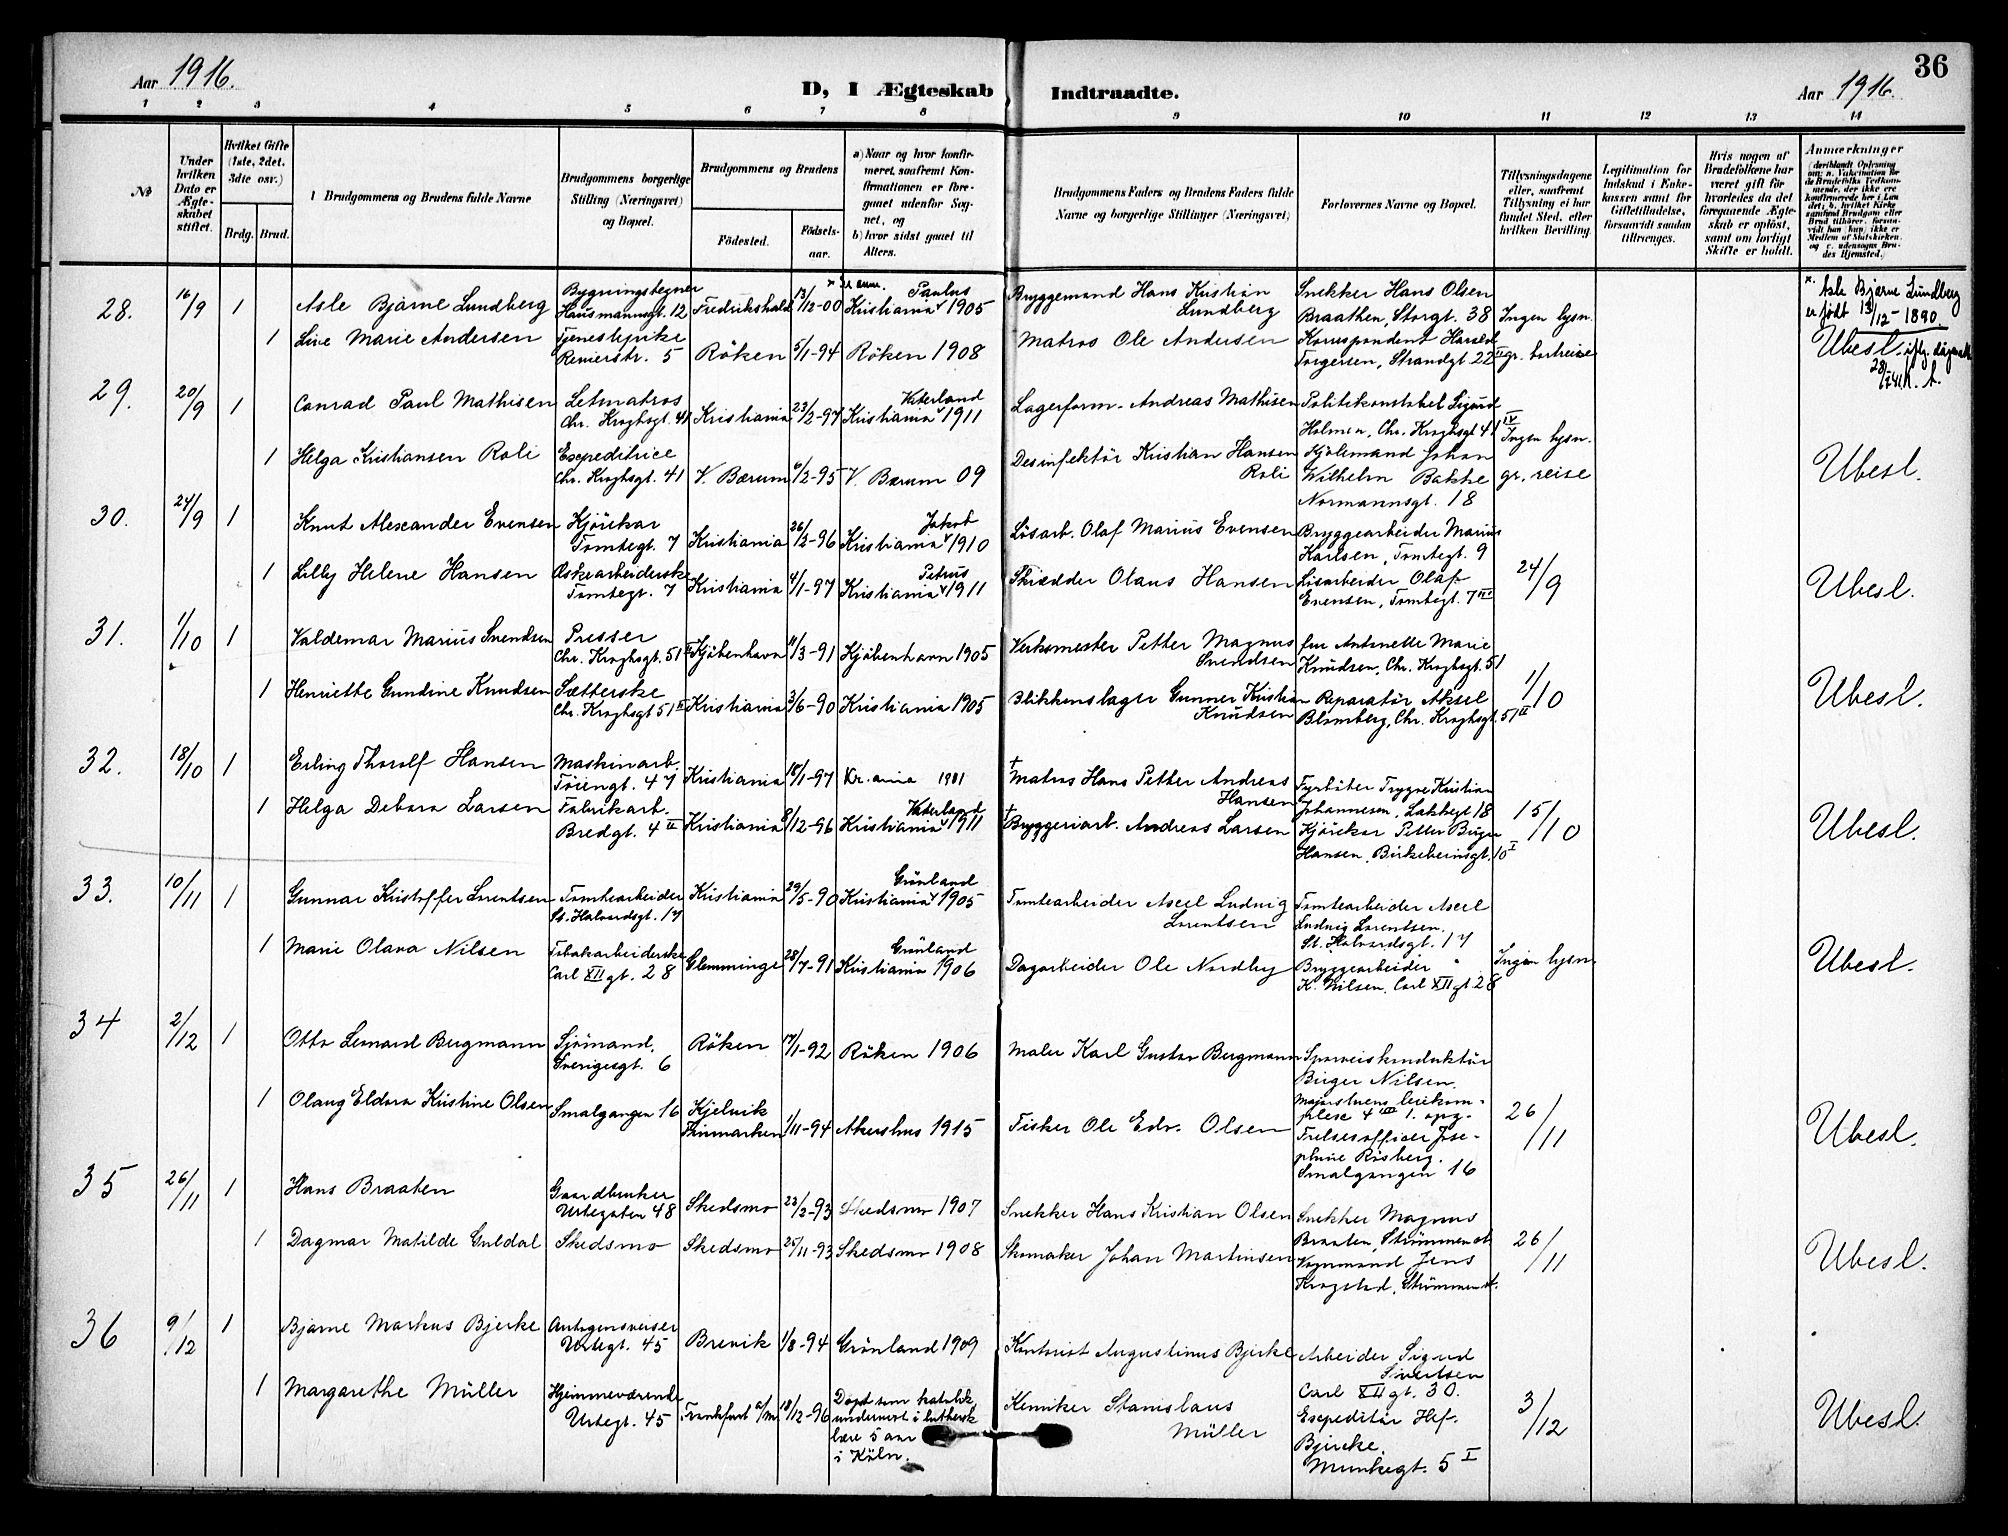 36
Aar 1916.
D, I Ægteskab Indtraadte.
Aar 1916.
1 2 3 4 5 6 7 8 9 10 11 12 13 14
№
Under hvilken Dato er Ægteskabet stiftet.
Hvilket Gifte (1ste, 2det, 3die osv.)
Brdg. Brud.
Brudgommens og Brudens fulde Navne
Brudgommens borgerlige Stilling (Næringsvei) og Bopæl.
Brudgommens og Brudens
Födested. Födsels-aar.
a) Naar og hvor konfirmeret, saafremt Konfirmationen er foregaaet udenfor Sognet, og
b) hvor sidst gaaet til Alters.
Brudgommens Faders og Brudens Faders fulde Navne og borgerlige Stillinger (Næringsvei)
Forlovernes Navne og Bopæl.
Tillysningsdagene eller, saafremt Tillysning ei har fundet Sted, efter hvilken Bevilling.
Legitimation for Indskud i Enkekassen samt for Giftetilladelse, forsaavidt saadan tiltrænges.
Hvis nogen af Brudefolkene har været gift før hvorledes da det foregaaende Ægteskab er opløst, samt om lovligt Skifte er holdt.
Anmærkninger
28. 16/9 1 Asle Bjarne Lundberg Bygningstegner Hausmannsgt. 12 Fredrikshald 13/12-00 Kristiania Paulus 1905 Bryggemand Hans Kristian Lundberg Snekker Hans Olsen Braathen, Storgt. 38 Ingen lysn.
x. Asle Bjarne Lundberg er født 13/12-1890.
1 Live Marie Andersen Tjenestepike Renierstr. 5 Röken 5/1-94 Röken 1908 Matros Ole Andersen Korrespondent Harald Torgersen, Strandgt. 22 gr. bortreise Ubesl.
29. 20/9 1 Conrad Paul Mathisen Letmatros Chr. Kroghsgt. 41 Kristiania 23/2-97 Kristiania Vaterland 1911 Lagerform. Andreas Mathisen Politikonstabel Sigurd Holmen, Chr. Kroghsgt 41 IV Ingen lysn.
1 Helga Kristiansen Roli Expeditrice Chr. Kroghsgt. 41 V. Bærum 6/2-95 V. Bærum 09 Desinfektör Kristian Hansen Roli Kjölemand Johan Wilhelm Bakke Normannsgt. 18 gr. reise Ubesl.
30. 24/9 1 Knut Alexander Evensen Kjörekar Tomtegt. 7 Kristiania 26/2-96 Kristiania Jakob 1910 Lösarb. Olaf Marius Evensen Bryggearbeider Marius Karlsen, Tomtegt. 9
1 Lilly Helene Hansen Æskearbeiderske Tomtegt. 7 Kristiania 4/1-97 Kristiania Petrus 1911 Skrædder Olaus Hansen Lösarbeider Olaf Evensen, Tomtegt. 7 24/9 Ubesl.
31. 1/10 1 Valdemar Marius Svendsen Presser Chr. Kroghsgt. 51 II Kjöbenhavn 11/3-91 Kjöbenhavn 1905 Verksmester Petter Magnus Svendsen fru Antonette Marie Knudsen, Chr. Kroghsgt. 51
1 Henriette Gundine Knudsen Sætterske Chr. Kroghsgt 51 II Kristiania 3/6-90 Kristiania 1905 Blikkenslager Gunner Kristian Knudsen Reparatör Aksel Blomberg, Chr. Kroghsgt. 51 II 1/10 Ubesl.
32. 18/10 1 Erling Thorolf Hansen Maskinarb. Töiengt. 47 Kristiania 18/1-97 Kr.ania 1911 † Matros Hans Petter Andreas Hansen Fyrböter Trygve Kristian Johannesen, Lakkegt 18
1 Helga Debora Larsen Fabrikarb. Bredgt. 4 II Kristiania 8/12-96 Kristiania Vaterland 1911 † Bryggeriarb. Andreas Larsen Kjörekar Petter Birger Hansen, Birkebeinsgt. 10 I 15/10 Ubesl.
33. 10/11 1 Gunnar Kristoffer Lorentsen Tomtearbeider St. Halvardsgt. 17 Kristiania 29/5-90 Kristiania Grönland 1905 Tomtearbeider Axel Ludvig Lorentsen Tomtearbeider Axel Ludvig Lorentsen. St. Halvardsgt. 17
1 Marie Olava Nilsen Tobakarbeiderske Carl XII gt. 28 Glemminge 28/7-91 Kristiania Grönland 1906 Dagarbeider Ole Nordby Bryggearbeider K. Nilsen, Carl XII gt 28 Ingen lysn. Ubesl.
34 2/12 1 Otto Leonard Bergmann Sjömand. Sverigesgt. 6 Röken 17/1-92 Röken 1906 Maler Karl Gustav Bergmann Sporveiskonduktör Birger Nilsen. Majorstuens leiekomplex 4 1. opg.
1 Olaug Eldora Kristine Olsen Smalgangen 16 Kjelvik Finmarken 1/11-94 Akershus 1915 Fisker Ole Edv. Olsen Frelsesofficer Josephine Risberg. Smalgangen 16 26/11 Ubesl.
35 26/11 1 Hans Braaten Gaardbruker Urtegaten 48 Skedsmo 23/2-93 Skedsmo 1907 Snekker Hans Kristian Olsen Snekker Magnus Braaten, Strömmen st.
1 Dagmar Matilde Guldal Skedsmo Skedsmo 25/11-93 Skedsmo 1908 Skomaker Johan Martinsen Vognmand Jens Krogstad, Strömmen st. 26/11 Ubesl.
36 9/12 1 Bjarne Markus Bjerke Urtegt. 45 Brevik 1/8-94 Grönland 1909 Kontorist Augustinus Bjerke Arbeider Sigurd Sivertsen Carl XII gt. 30.
1 Margarethe Müller Hjemmeværende Urtegt. 45 Frankfurt a/M 18/12-96 Döpt som katolik undervist i luthersk lære 5 aar i Köln. Kemiker Stanislaus Müller Expeditör Hef. Bjercke, Munkegt. 5 I 3/12 Ubesl.